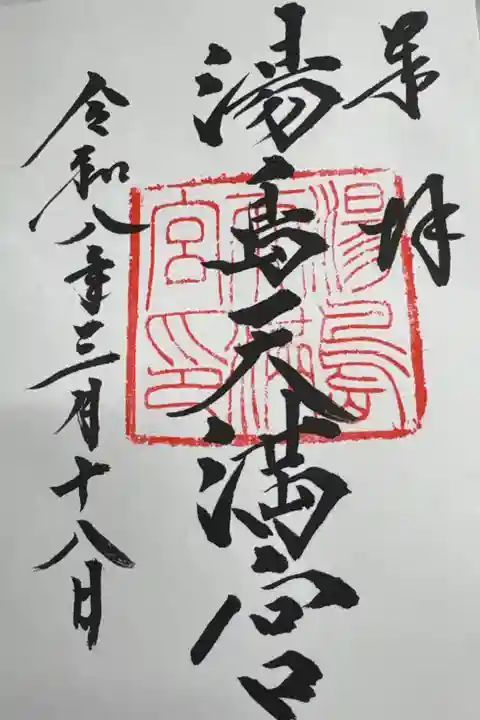 奉拝
湯島天満宮
湯島
天満
宮印
令和八年三月十八日